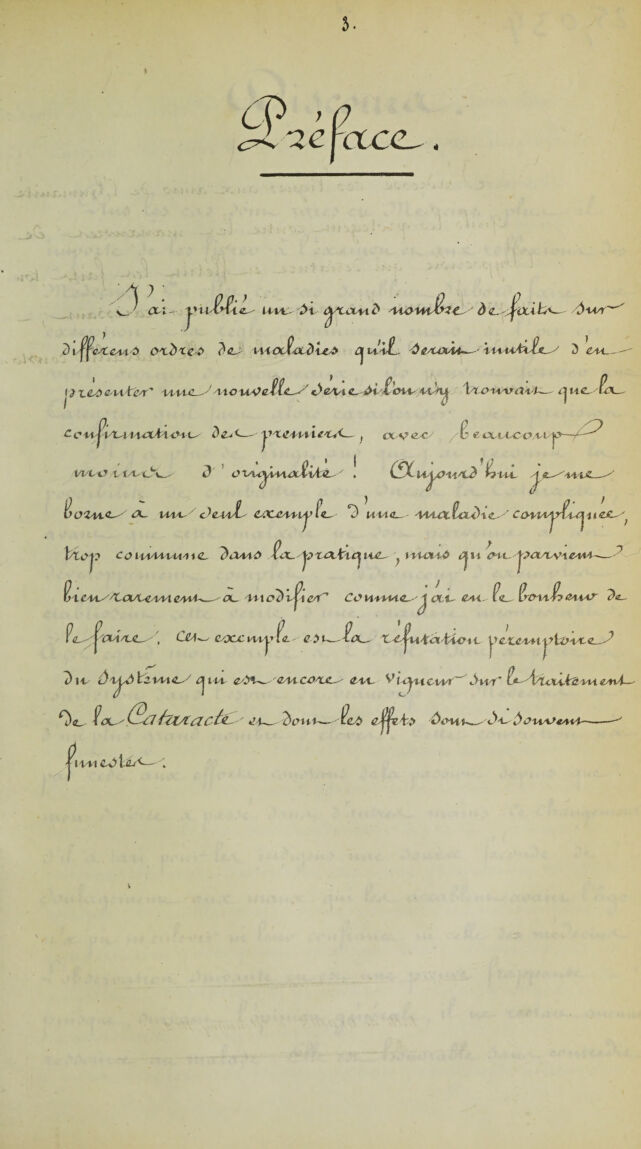 3.
Préface.
J'ai publié un si grand nombre de faits sur
différens ordres de maladies qu'il serait inutile d'en
présenter une nouvelle série si l'on n'y trouvait que la
confirmation des premiers, avec beaucoup
moins d'originalité ! Aujourd'hui je me
borne à un seul exemple d'une maladie compliquée,
trop commune dans la pratique, mais qu'on parvient
bien rarement à modifier comme j'ai eu le bonheur de
le faire. Cet exemple est la réfutation péremptoire
du système qui est encore en vigueur sur le traitement
de la Cataracte et dont les effets sont si souvent
funestes.